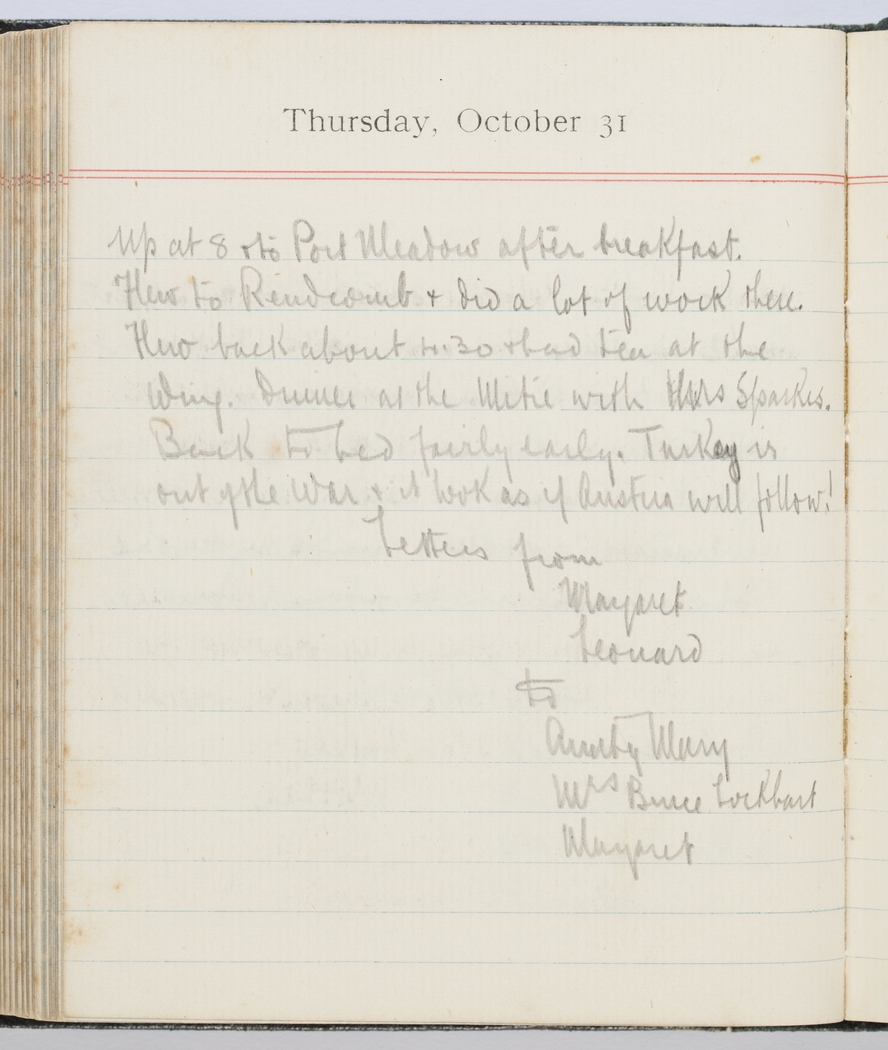 Thursday, October 31
Up at 8 & to Port Meadow after breakfast.
Flew to Rendcomb & did a lot of work there.
Flew back about 4.30 & had tea at the
Wing. Dinner at the Mitre with Mrs Sparkes.
Back to bed fairly early. Turkey is
out of the War & it look as if Austria will follow!
Letters from
Margaret
Leonard
to
Aunty Mary
Mrs Bruce Lockhart
Margaret